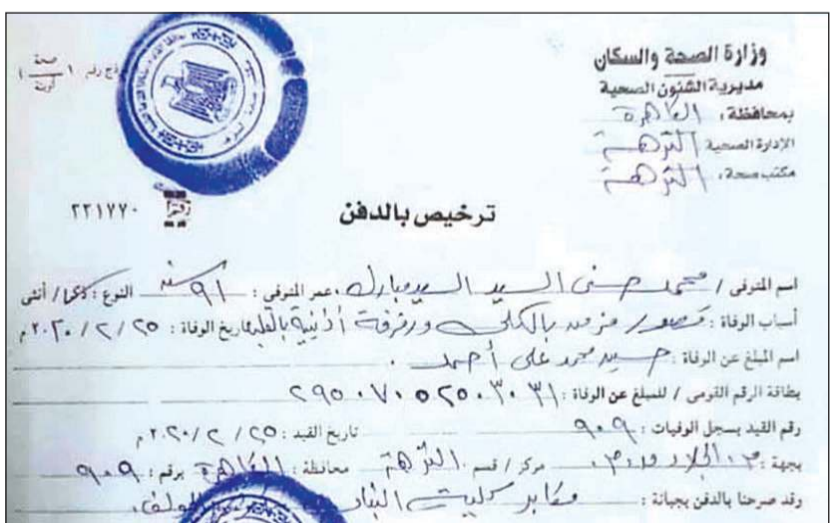 وزارة الصحة والسكان
مديرية الشئون الصحية
بمحافظة: القاهرة
الإدارة الصحية النزهة
مكتب صحة: النزهة
صحة
رقم
٢٢١٧٧٠
ترخيص بالدفن
اسم المتوفى / محمد حسنى السيد السيد مبارك عمر المتوفى: ٩١ سنة النوع: ذكر / أنثى
أسباب الوفاة: قصور مزمن بالكلى ورفرفة أذينية بالقلب تاريخ الوفاة: ٢٥ / ٢ / ٢٠٢٠ م
اسم المبلغ عن الوفاة: سيد محمد على أحمد
بطاقة الرقم القومى / للمبلغ عن الوفاة: ٢٩٥٠٧٠٥٢٥٠٣٠٣١
رقم القيد بسجل الوفيات: ٩٠٩ تاريخ القيد: ٢٥ / ٢ / ٢٠٢٠ م
بجهة: م. الجلاء مركز / قسم: النزهة محافظة: القاهرة برقم: ٩٠٩
وقد صرحنا بالدفن بجبانة: مقابر كلية البنات